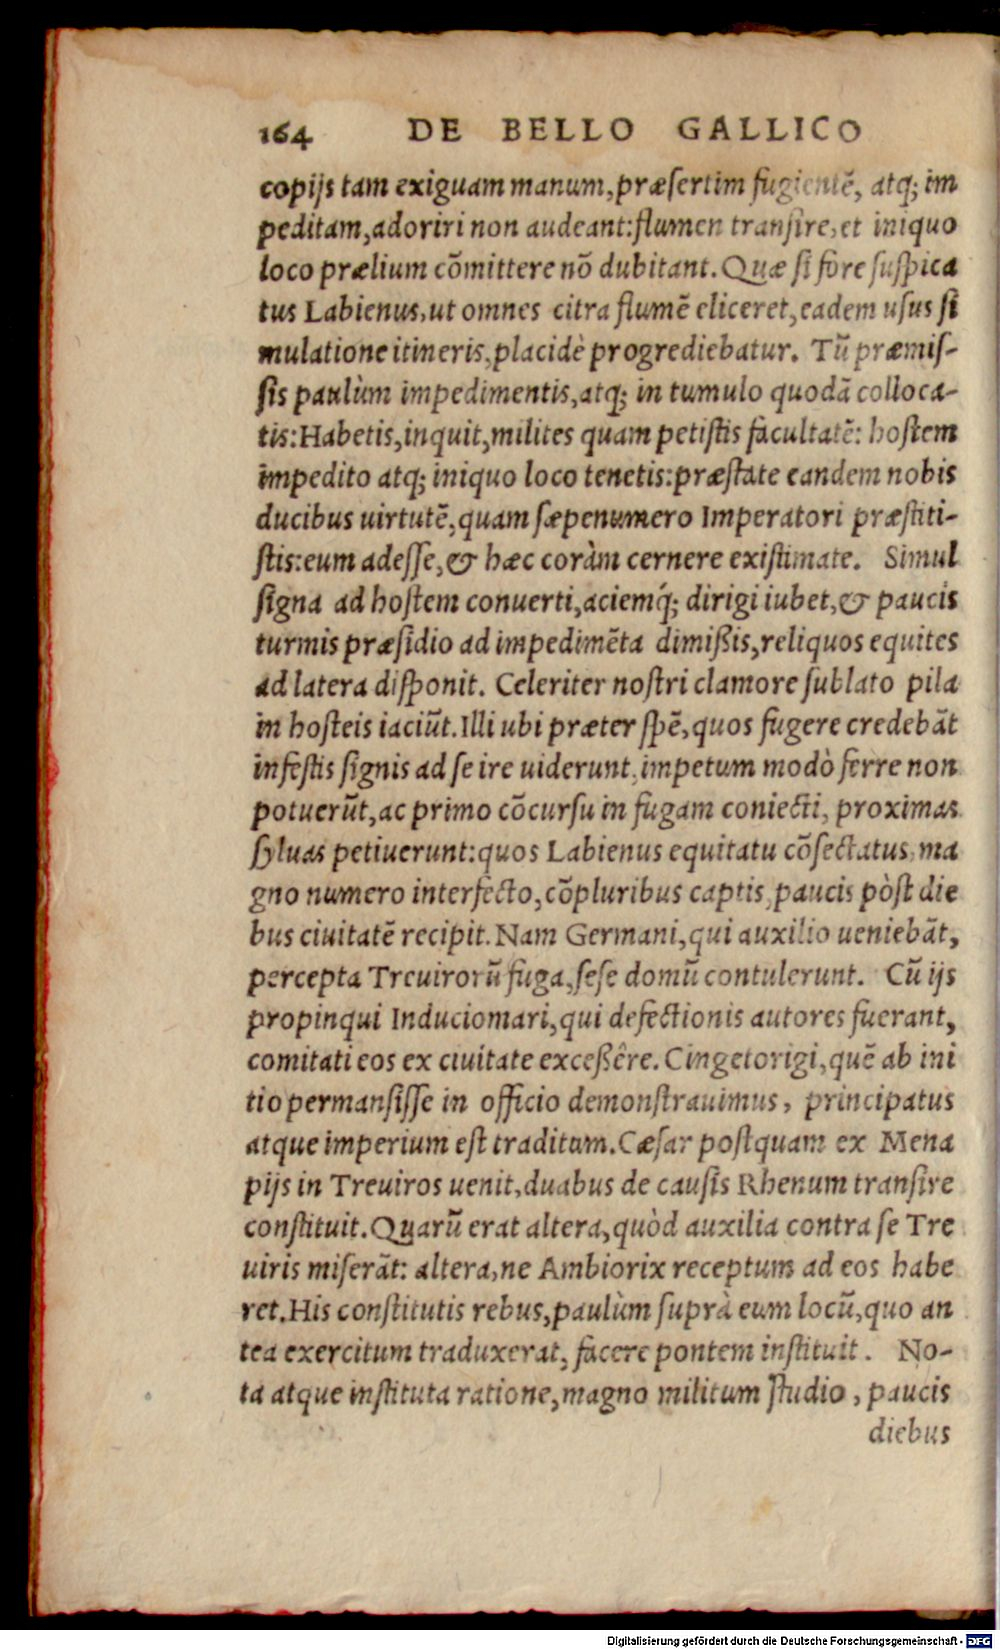 164 DE BELLO GALLICO
copijs tam exiguam manum, præsertim fugientē, atq; im
peditam, adoriri non audeant: flumen transire, et iniquo
loco prælium cōmittere nō dubitant. Quæ si fore suspica
tus Labienus, ut omnes citra flumē eliceret, eadem usus si
mulatione itineris, placidè progrediebatur. Tū præmis-
sis paulùm impedimentis, atq; in tumulo quodā colloca-
tis: Habetis, inquit, milites quam petistis facultatē: hostem
impedito atq; iniquo loco tenetis: præstate eandem nobis
ducibus uirtutē, quam sæpenumero Imperatori præstiti-
stis: eum adesse, & hæc coràm cernere existimate. Simul
signa ad hostem conuerti, aciemq́; dirigi iubet, & paucis
turmis præsidio ad impedimēta dimißis, reliquos equites
ad latera disponit. Celeriter nostri clamore sublato pila
in hosteis iaciūt. Illi ubi præter spē, quos fugere credebāt
infestis signis ad se ire uiderunt, impetum modò ferre non
potuerūt, ac primo cōcursu in fugam coniecti, proximas
syluas petiuerunt: quos Labienus equitatu cōsectatus, ma
gno numero interfecto, cōpluribus captis, paucis pòst die
bus ciuitatē recipit. Nam Germani, qui auxilio ueniebāt,
percepta Treuirorū fuga, sese domū contulerunt. Cū ijs
propinqui Induciomari, qui defectionis autores fuerant,
comitati eos ex ciuitate exceßêre. Cingetorigi, quē ab ini
tio permansisse in officio demonstrauimus, principatus
atque imperium est traditum. Cæsar postquam ex Mena
pijs in Treuiros uenit, duabus de causis Rhenum transire
constituit. Quarū erat altera, quòd auxilia contra se Tre
uiris miserāt: altera, ne Ambiorix receptum ad eos habe
ret. His constitutis rebus, paulùm suprà eum locū, quo an
tea exercitum traduxerat, facere pontem instituit. No-
ta atque instituta ratione, magno militum studio, paucis
diebus
Digitalisierung gefördert durch die Deutsche Forschungsgemeinschaft - DFG